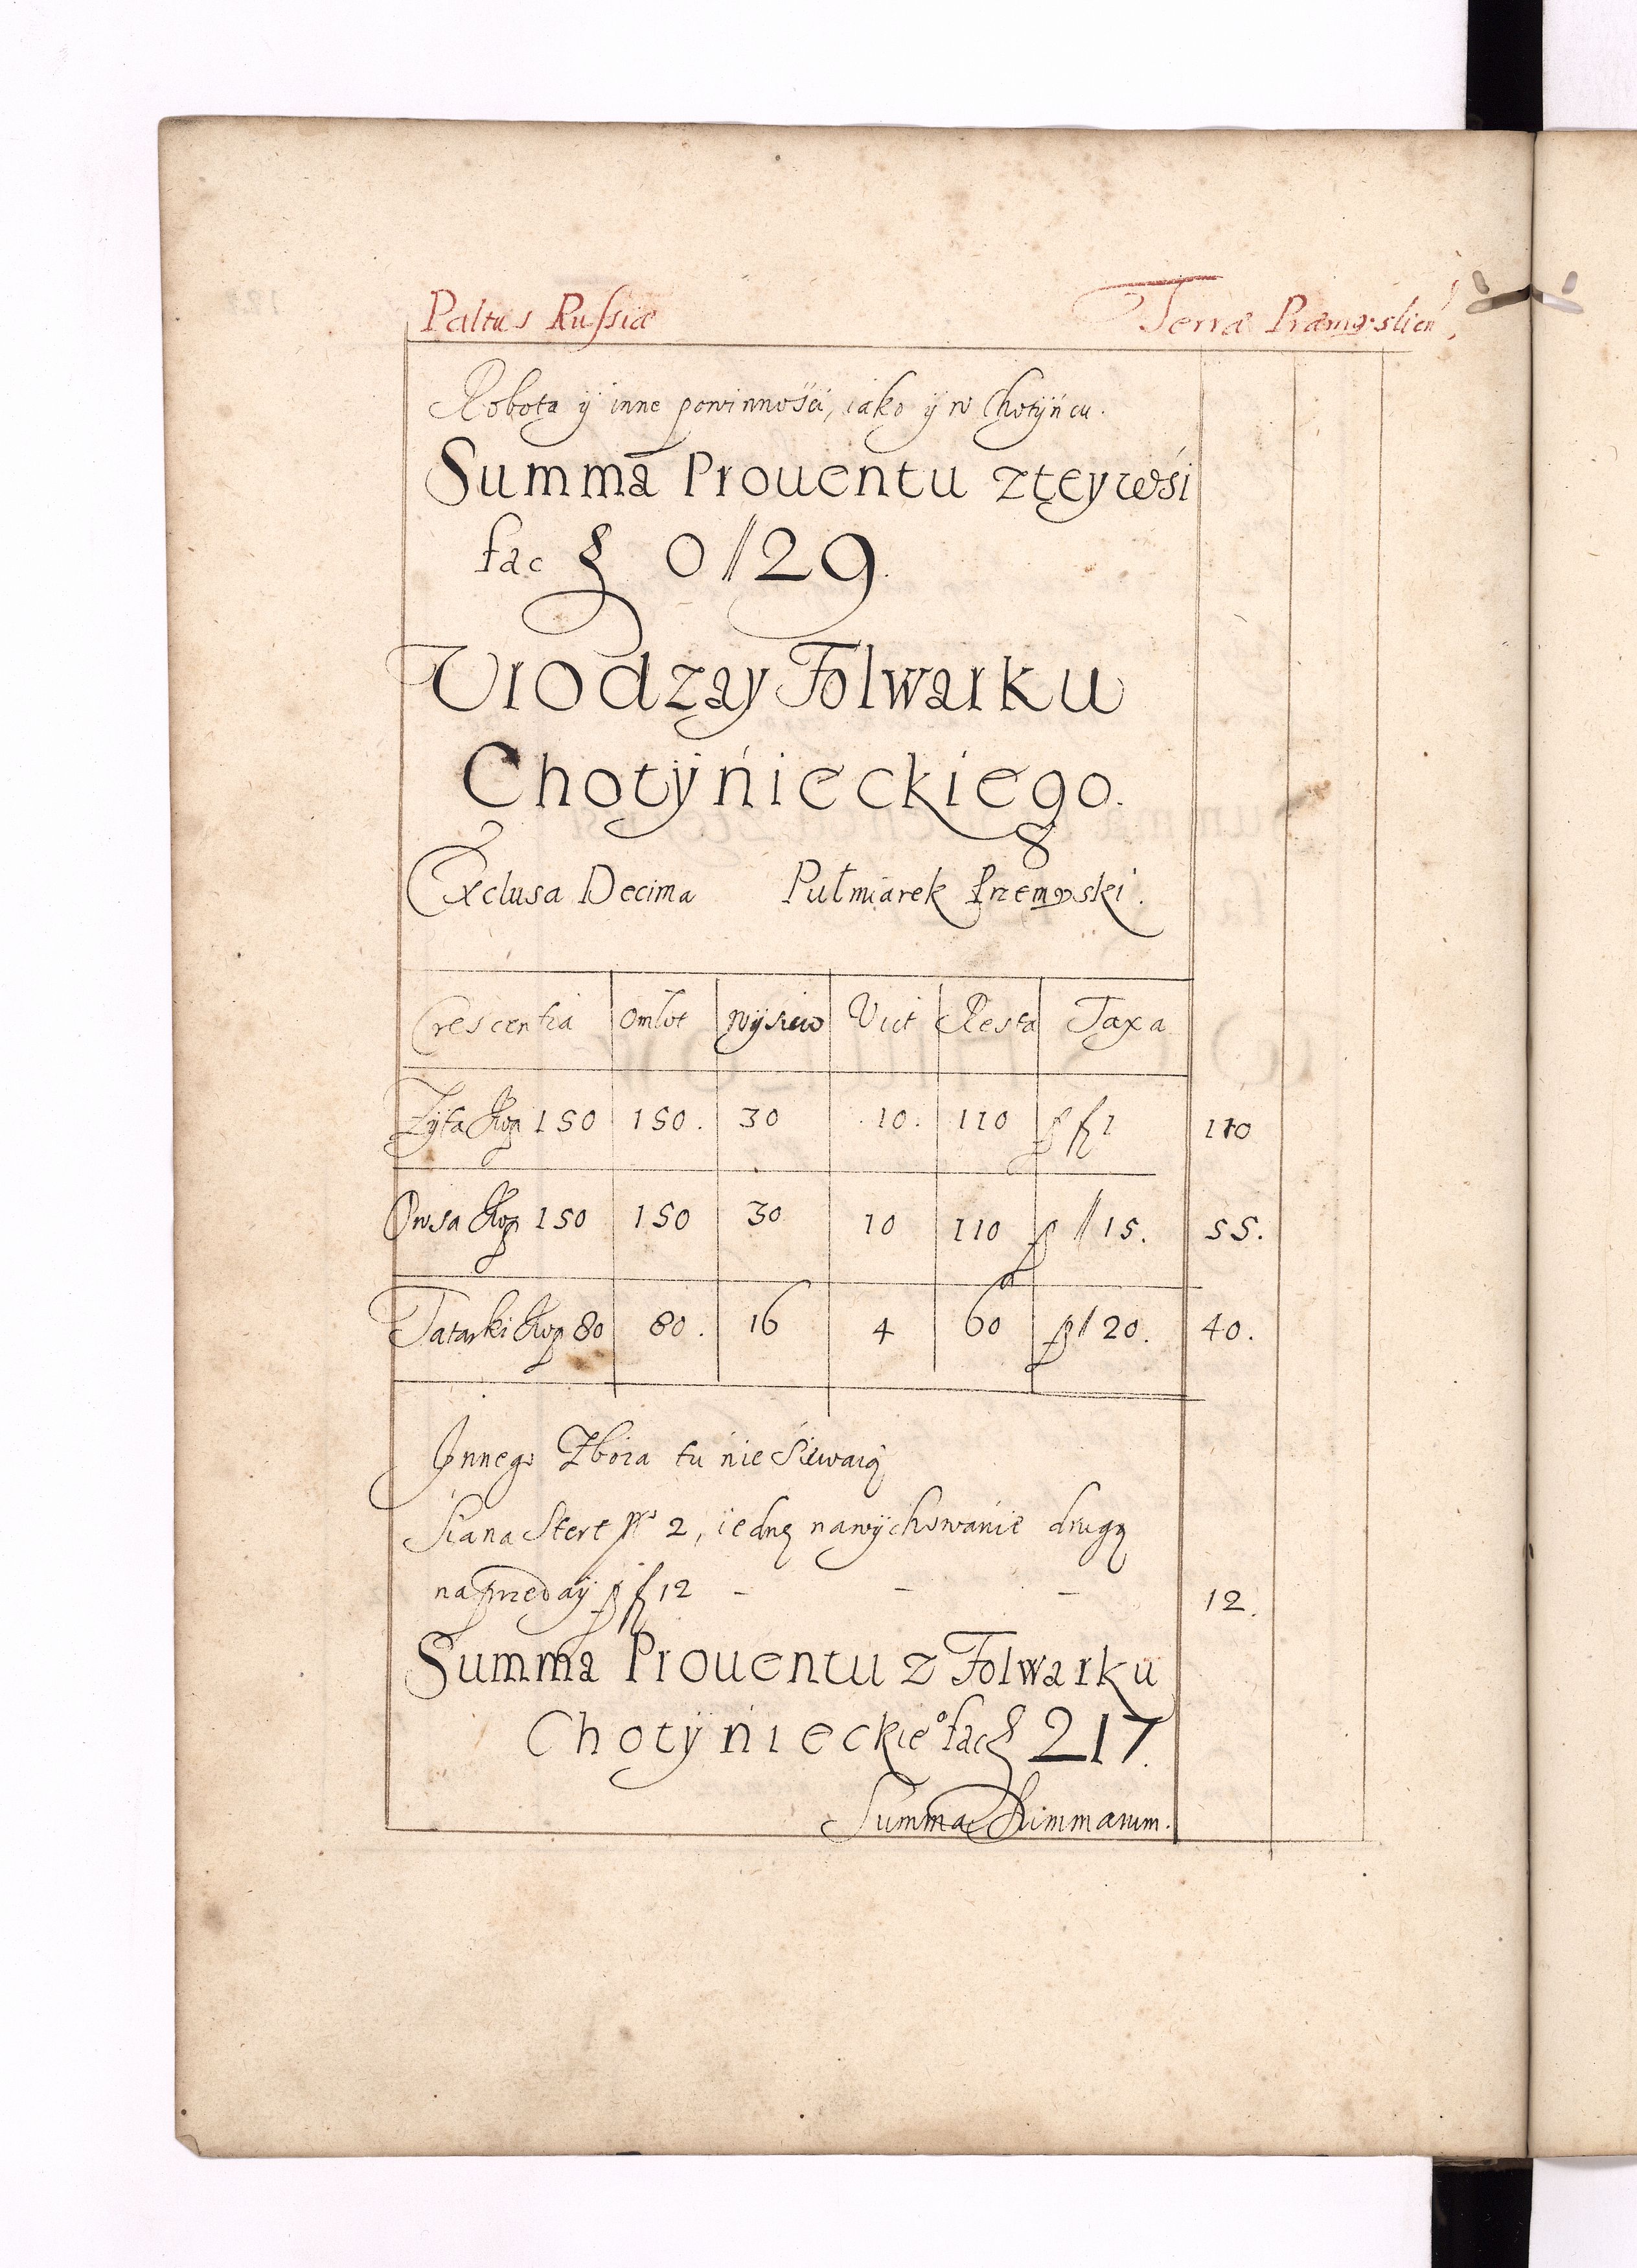 Paltus Russiæ Terræ Præmyslien
Robota ÿ inne powinnośći, iako ÿ w Chotÿńcu.
Summa Prouentu z tey wśi
fac § 0 // 29.
Vrodzay Folwarku
Chotÿńieckiego.
Exclusa Decima Pułmiarek Przemyski.
Crescentia Omłot Wÿśiew Vict Resta Taxa
Zÿta Kop 150 150. 30 10. 110 p fl 1 110
Owsa Kop 150 150 30 10 110 p // 15. 55.
Tatarki Kop 80 80. 16 4 60 p // 20. 40.
Innego Zboża tu nie śiewaią
Śiana Stert No 2, iednę na wÿchowanie drugą
na przedaÿ p fl 12 - - - 12.
Summa Prouentu z Folwarku
Chotÿnieckieº fac § 217.
Summa Summarum.